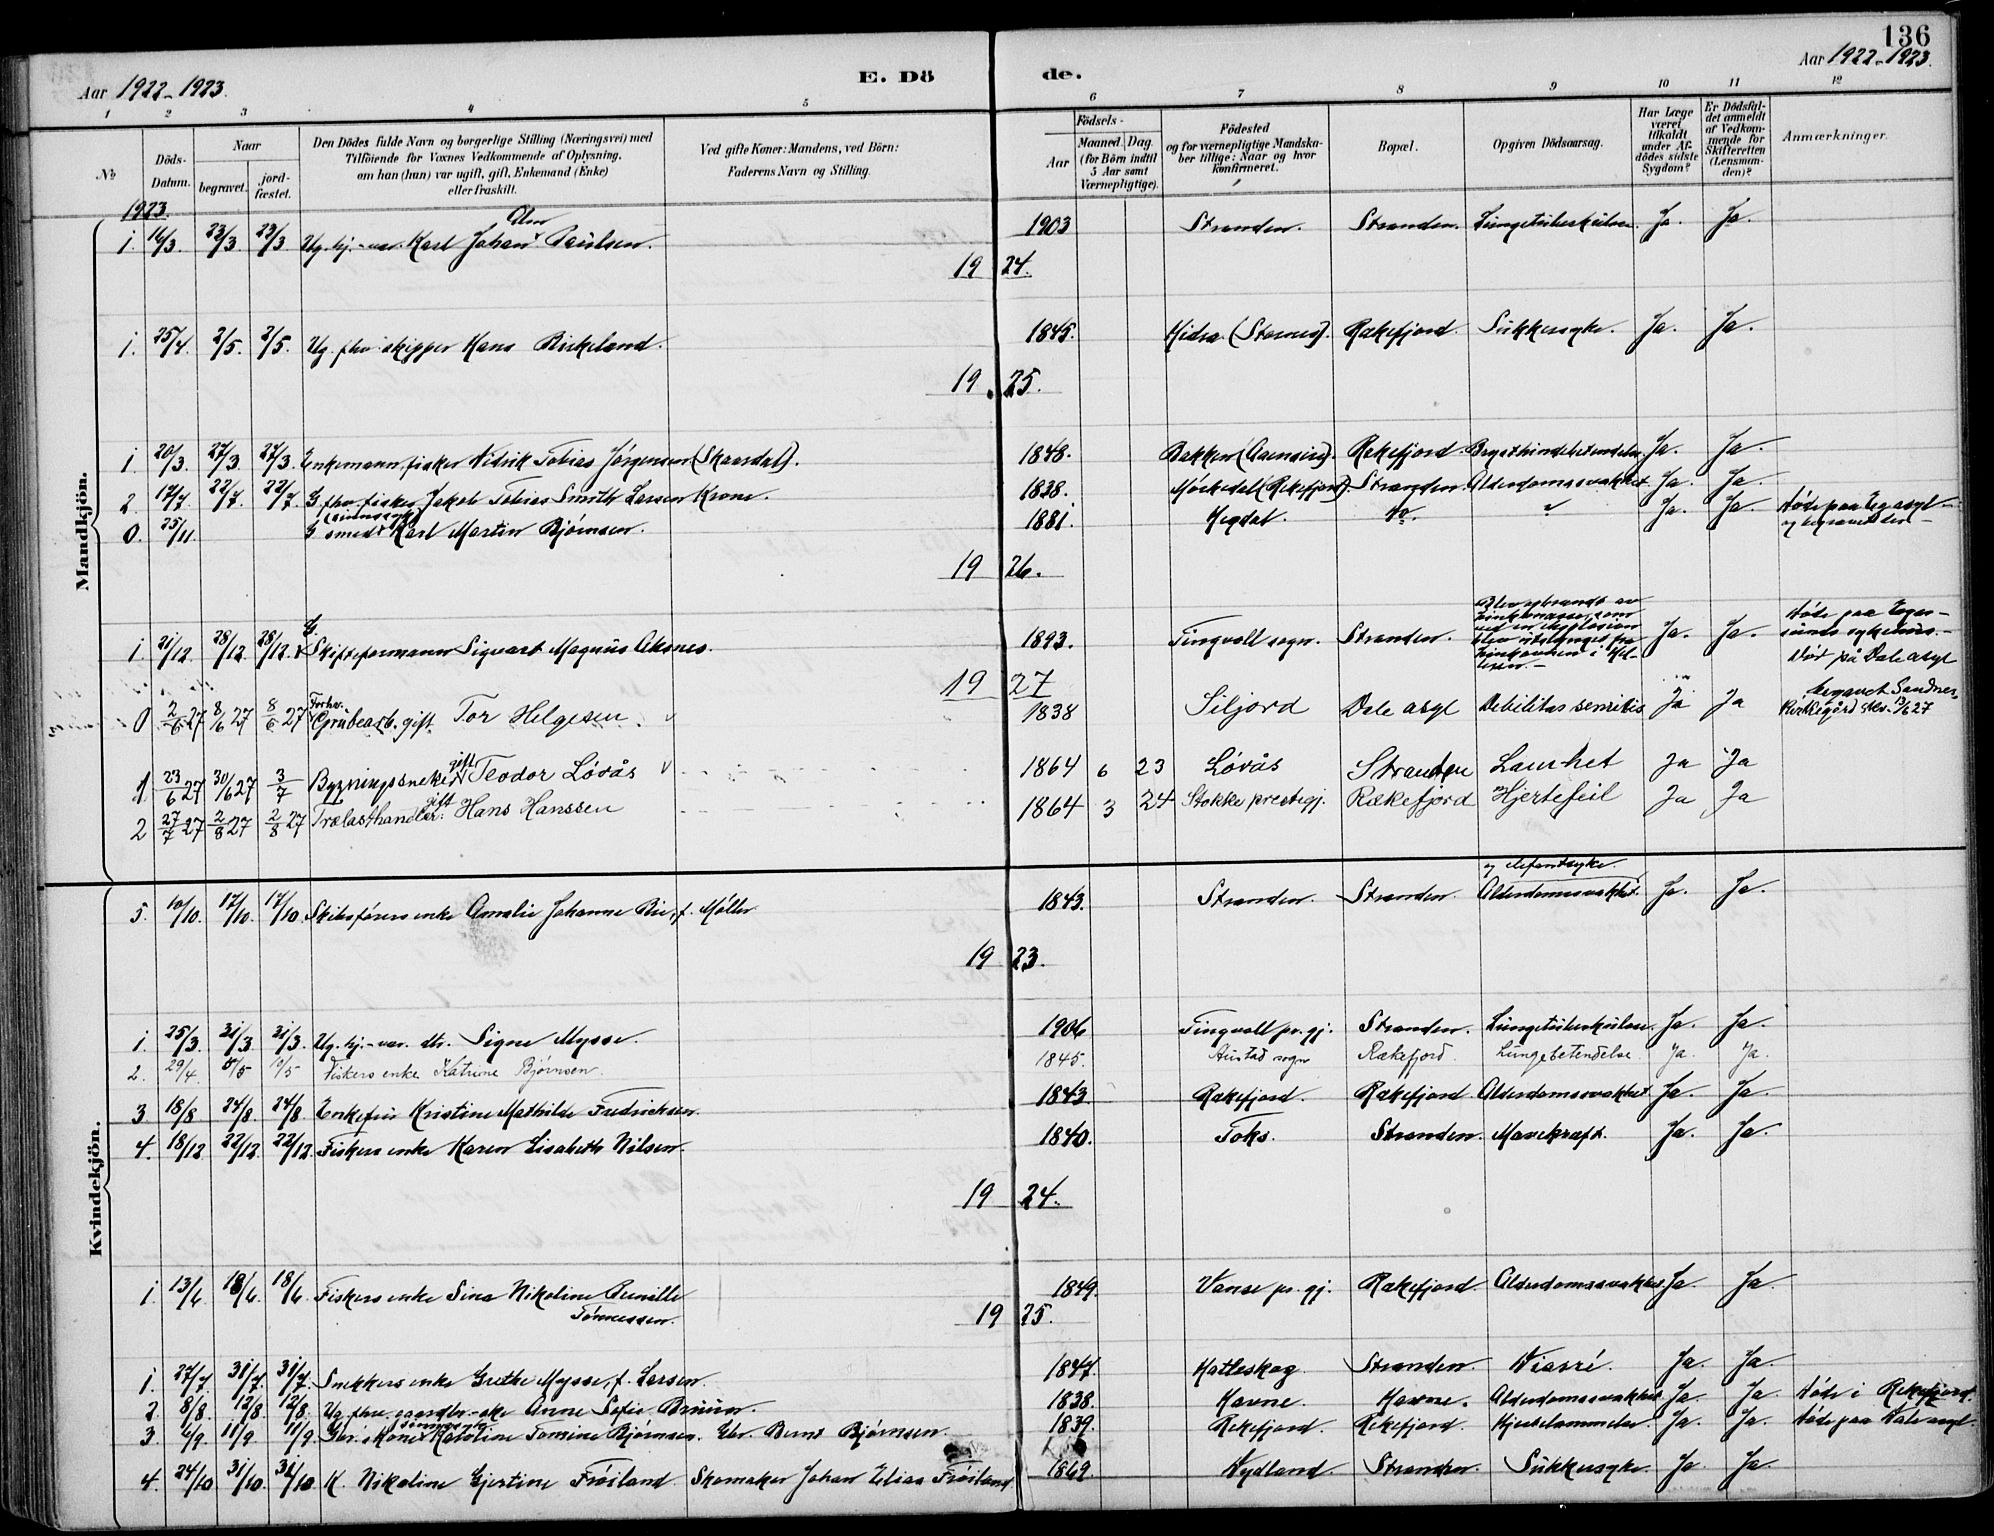 136
Aar 1922-1923.
E. Dö
de.
Aar 1922-1923.
1 2 3 4 5 6 7 8 9 10 11 12
№
Döds-Datum.
Naar
begravet.
jord-fæstet.
Den Dödes fulde Navn og borgerlige Stilling (Næringsvei) med
Tilföiende for Voxnes Vedkommende af Oplysning,
om han (hun) var ugift, gift, Enkemand (Enke)
eller fraskilt.
Ved gifte Koner: Mandens, ved Börn:
Faderens Navn og Stilling.
Födsels-
Aar
Maaned. Dag.
(for Börn indtil
5 Aar samt
Værnepligtige).
Födested
og for værnepligtige Mandska-
ber tillige: Naar og hvor
konfirmeret.
Bopæl.
Opgiven Dödsaarsag.
Har Læge
været
tilkaldt
under Af-
dödes sidste
Sygdom?
Er Dödsfal-
det anmeldt
af Vedkom-
mende for
Skifteretten
(Lensman-
den)?
Anmærkninger.
Mandkjön.
1923.
1. 16/3 23/3 23/3 Ug. hj.-var. Karl Johan Paulsen. 1903 Stranden. Stranden. Lungetuberkulose. Ja. Ja.
19 24.
1. 25/4. 2/5. 2/5. Ug. fhv. skipper Hans Birkeland. 1845. Hidra (Stornes). Rækefjord. Sukkersyke. Ja. Ja.
19 25.
1 20/3. 27/3. 27/3. Enkemann, fisker Didrik Tobias Jørgensen (Skaardal). 1848. Bakken (Aamsire). Rekefjord. Brysthindebetendelse. Ja. Ja.
2. 17/7 22/7. 22/7. G. fhv. fisker Jakob Tobias Smith Larsen Krone. 1838. Mørkedal (Rekefjord). Stranden. Alderdomssvakhet. Ja. Ja.
0. 25/11. G. smed Karl Martin Bjørnsen. 1881. Hegdal. Do. Ja. Ja. Døde paa Eg asyl -
og begravet der -
19 26.
1. 21/12 28/12 28/12. G. Skiftformann Sigvart Magnus Aksnes. 1893. Tingvoll sogn. Stranden. Ja. Ja. Døde paa Eger-
sunds sykehus. -
19 27
0 2/6 27 8/6 27 8/6 27 Forhv. Grubearb. gift. Tor Helgesen. 1838 Siljord Dale asyl Debilitas senilis Ja Ja Død på Dale asyl
begravet Sandnes
Kirkegård
1 23/6 27 30/6 27 3/7 Bygningssneker gift Teodor Løvås 1864 6 23 Løvås Stranden Lamhet Ja Ja
2 27/7 27 2/8 27 2/8 27 Trælasthandler. gift Hans Hanssen 1864 3 24 Stokke prestegj. Rækefjord Hjertefeil Ja Ja
Kvindekjön.
5. 10/10. 17/10. 17/10. Skibsførers enke Amalie Johanne Bie, f. Møller 1843. Stranden. Stranden. Alderdomssvakhet. Ja. Ja.
19 23.
1. 25/3. 31/3 31/3. Ug. hj.-var. dtr. Signe Mysse. 1906 Tingvoll pr. gj. Stranden. Lungetuberkulose. Ja. Ja.
2. 29/4. Fiskers enke Katrine Bjørnsen. 1845. Austad sogn Rækefjord. Lungebetendelse. Ja. Ja.
3 18/8 24/8. 24/8. Enkefru Kristine Mathilde Fredrichsen. 1843. Rækefjord. Rækefjord. Alderdomssvakhet. Ja. Ja.
4. 18/12 22/12. 22/12. Fiskers enke Karen Lisabeth Nilsen. 1840. Foks. Stranden. Mavekræft. Ja. Ja.
19 24.
1. 13/6. 18/6. 18/6. Fiskers enke Sina Nikoline Pernille
Tønnessen. 1849. Vanse pr. gj. Rækefjord. Alderdomssvakhet. Ja. Ja.
19 25.
1. 27/7. 31/7. 31/7. Snekkers enke Grethe Mysse, f. Larsen. 1847. Hatleskog Stranden. Ja. Ja.
2. 8/8. 12/8. 12/8. Anne Sofie Bruun. 1838. Havne. Havne. Alderdomssvakhet. Ja. Ja. Døde i Rekefjord.
3. 6/9. 11/9 11/9. Karoline Tomine Bjørnsen. Bernt Bjørnsen. 1839. Rekefjord. Rekefjord. Hjertelammelse. Ja. Ja. Døde paa Dale asyl.
4. 24/10 31/10. 31/10. K. Nikoline Gjertine Frøiland. Skomaker Johan Elias Frøiland 1869. Nydland. Stranden. Sukkersyke. Ja. Ja.